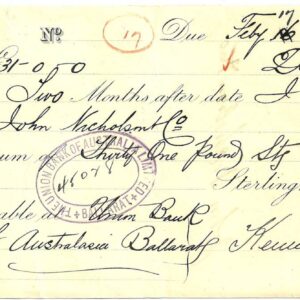 17
No 17 Due Feby
£31-0-0
Two Months after date I
John Nicholson & Co
um of Thirty One Pound Stg
Sterling
THE UNION BANK OF AUSTRALIA LIMITED
BALLARAT
able at Union Bank
of Australasia Ballarat